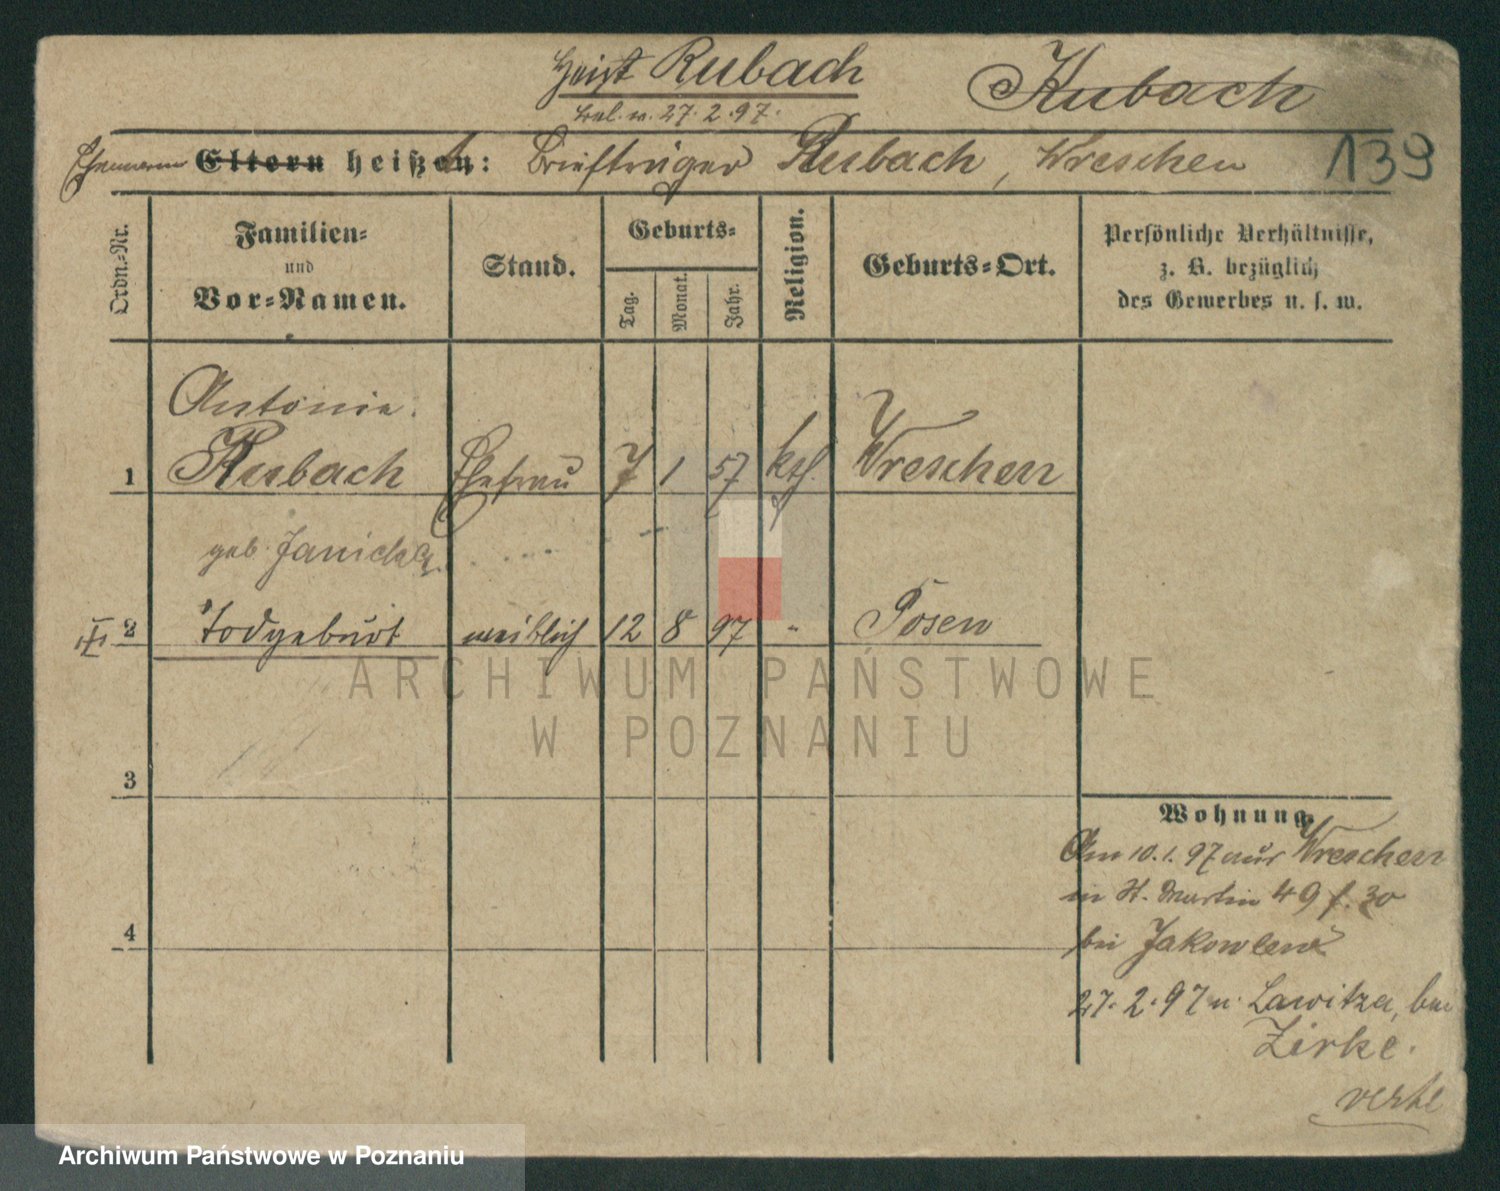 Heißt Rubach
Kubach
27.2.97.
Ehemann Eltern heißen: Briefträger Rubach, Wreschen
139
Ordn.-Nr.
Familien-
und
Vor-Namen.
Stand.
Geburts-
Tag.
Monat.
Jahr.
Religion.
Geburts-Ort.
Persönliche Verhältnisse,
z. B. bezüglich
des Gewerbes u. s. w.
Antonie.
1 Rubach Ehefrau 7 1 57 kth. Wreschen
geb.
2 Todgeburt weiblich 12 8 97 " Posen
3
4
Wohnung
Am 10.1.97 aus Wreschen
in St. Martin 49
bei
27.2.97 n. Lawitza, bei
Zirke.
ARCHIWUM PAŃSTWOWE
W POZNANIU
Archiwum Państwowe w Poznaniu